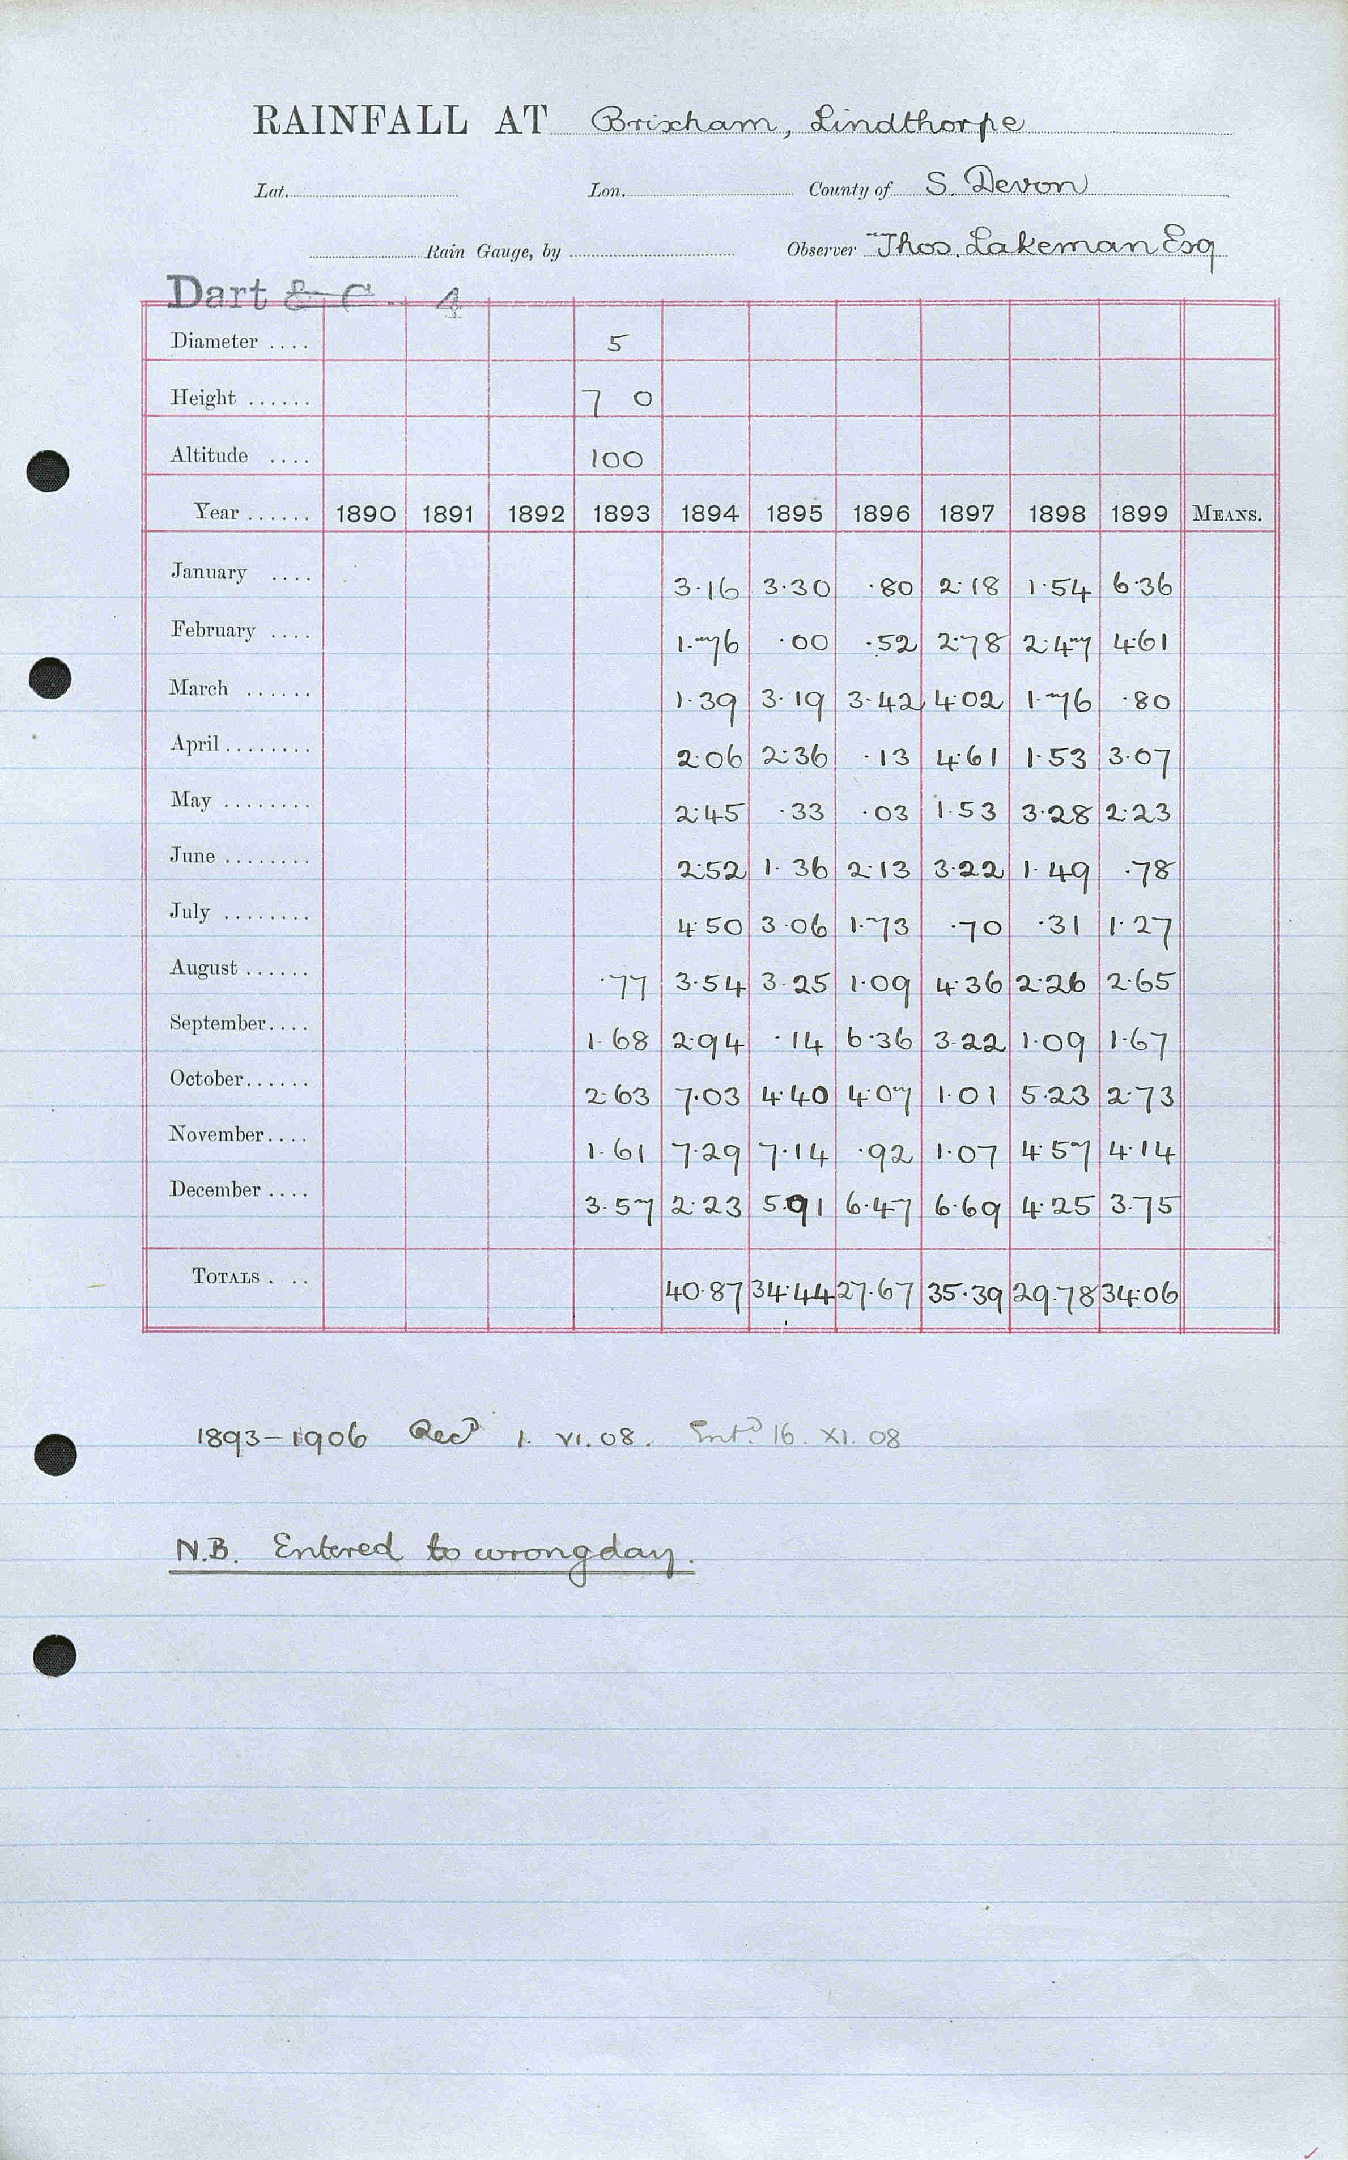 RAINFALL AT Brixham, Lindthorpe
Lat. Lon. County of S. Devon
Rain Gauge, by Observer Thos. Lakeman Esq
Dart & C 4
Diameter .... 5
Height ...... 7 0
Altitude .... 100
Year ...... 1890 1891 1892 1893 1894 1895 1896 1897 1898 1899 MEANS.
January .... 3.16 3.30 .80 2.18 1.54 6.36
February .... 1.76 .00 .52 2.78 2.47 4.61
March ...... 1.39 3.19 3.42 4.02 1.76 .80
April ........ 2.06 2.36 .13 4.61 1.53 3.07
May ........ 2.45 .33 .03 1.53 3.28 2.23
June ........ 2.52 1.36 2.13 3.22 1.49 .78
July ........ 4.50 3.06 1.73 .70 .31 1.27
August ...... .77 3.54 3.25 1.09 4.36 2.26 2.65
September.... 1.68 2.94 .14 6.36 3.22 1.09 1.67
October...... 2.63 7.03 4.40 4.07 1.01 5.23 2.73
November.... 1.61 7.29 7.14 .92 1.07 4.57 4.14
December .... 3.57 2.23 5.91 6.47 6.69 4.25 3.75
TOTALS . .. 40.87 34.44 27.67 35.39 29.78 34.06
1893-1906 Recd 1. VI. 08. Entd 16. XI. 08
N.B. Entered to wrong day.